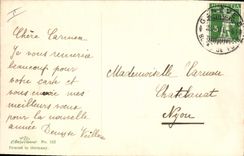 Chère Carmen
Je vous remercie
beaucoup pour
votre carte et
vous envoie mes
meilleurs vœux
pour la nouvelle
année Denyse
Mademoiselle Carmen
Chatelanat
Nyon
No. 
Printed in Germany